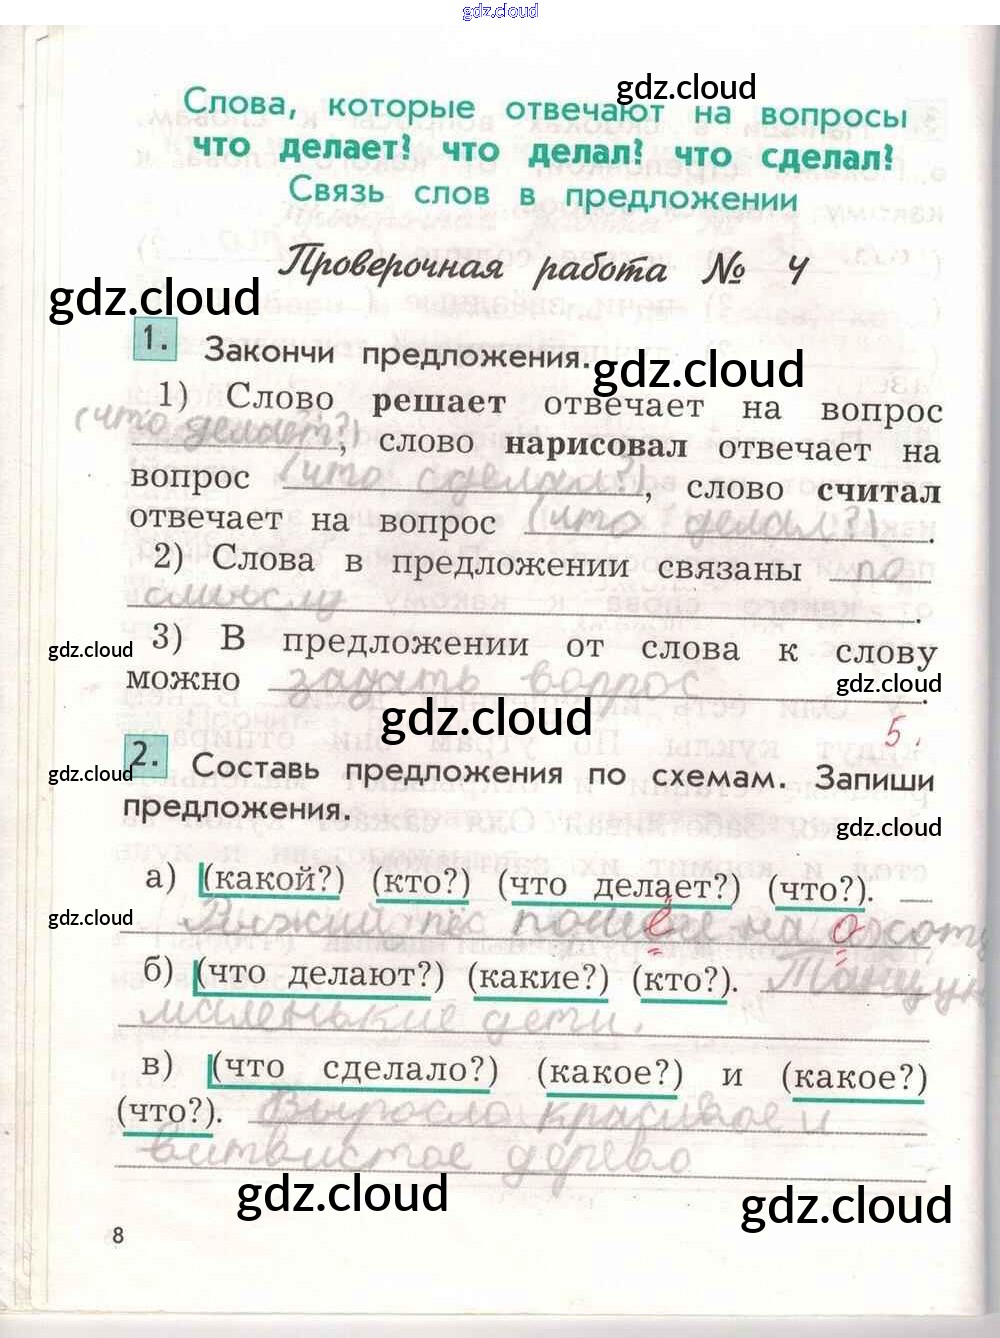 gdz.cloud
gdz.cloud
Слова, которые отвечают на вопросы
что делает? что делал? что сделал?
Связь слов в предложении
Проверочная работа № 4
gdz.cloud
1. Закончи предложения.
gdz.cloud
1) Слово решает отвечает на вопрос
(что делает?), слово нарисовал отвечает на
вопрос (что сделал?), слово считал
отвечает на вопрос (что делал?).
2) Слова в предложении связаны по
смыслу.
3) В предложении от слова к слову
gdz.cloud
можно задать вопрос.
gdz.cloud
gdz.cloud
5.
2. Составь предложения по схемам. Запиши
gdz.cloud
предложения.
gdz.cloud
а) (какой?) (кто?) (что делает?) (что?).
gdz.cloud
пёс на
б) (что делают?) (какие?) (кто?). Танцуют
маленькие дети.
в) (что сделало?) (какое?) и (какое?)
(что?). Выросло красивое и
ветвистое дерево
gdz.cloud
gdz.cloud
8